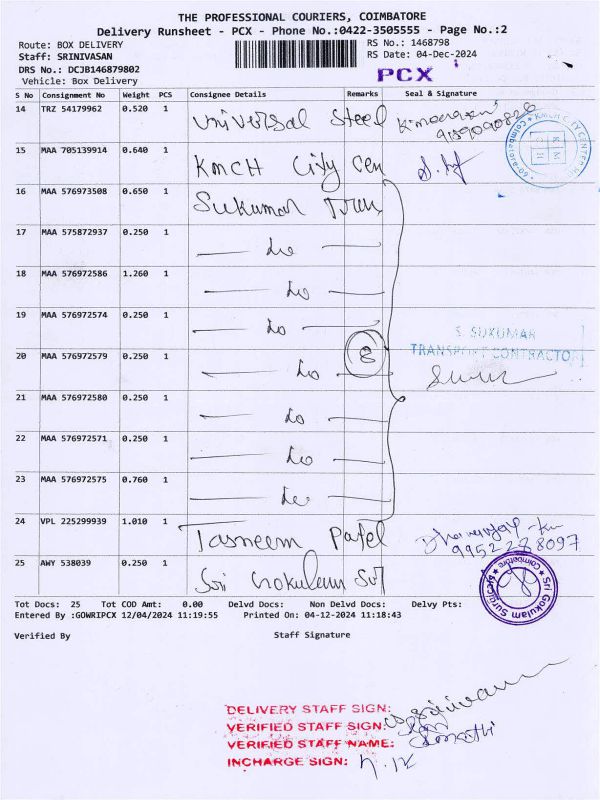 THE PROFESSIONAL COURIERS, COIMBATORE
Delivery Runsheet - PCX - Phone No.:0422-3505555 - Page No.:2
Route: BOX DELIVERY RS No.: 1468798
Staff: SRINIVASAN RS Date: 04-Dec-2024
DRS No.: DCJB146879802
Vehicle: Box Delivery PCX
S No Consignment No Weight PCS Consignee Details Remarks Seal & Signature
14 TRZ 54179962 0.520 1 Universal Steel
15 MAA 705139914 0.640 1 KMCH City Cen
KMCH CITY CENTER
Coimbatore
KMCH
16 MAA 576973508 0.650 1 Sukumar Tran
17 MAA 575872937 0.250 1 Do
18 MAA 576972586 1.260 1 Do
19 MAA 576972574 0.250 1 Do
S. SUKUMAR
20 MAA 576972579 0.250 1 Do 8 TRANSPORT CONTRACTOR
21 MAA 576972580 0.250 1 Do
22 MAA 576972571 0.250 1 Do
23 MAA 576972575 0.760 1 Do
24 VPL 225299939 1.010 1 Tasneem Patel
9952278097
25 AWY 538039 0.250 1 Sri Gokulam
Sri Gokulam Surgical
Coimbatore
Tot Docs: 25 Tot COD Amt: 0.00 Delvd Docs: Non Delvd Docs: Delvy Pts:
Entered By :GOWRIPCX 12/04/2024 11:19:55 Printed On: 04-12-2024 11:18:43
Verified By Staff Signature
DELIVERY STAFF SIGN: Srinivasan
VERIFIED STAFF SIGN:
VERIFIED STAFF NAME:
INCHARGE SIGN: